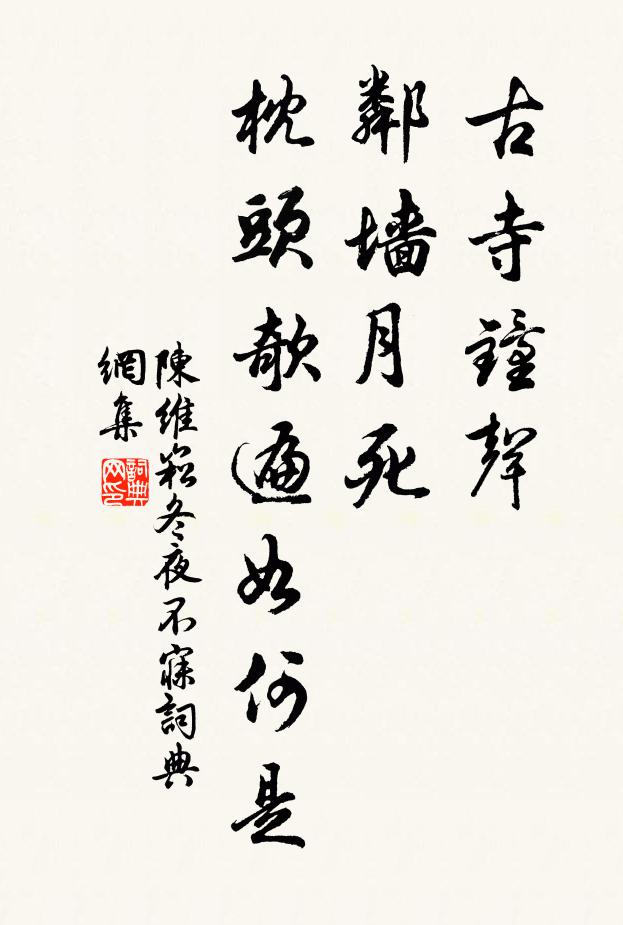 古寺鐘聲
鄰墻月死
枕頭欹遍如何是
陳維崧冬夜不寐詞典
網集
詞典
网印